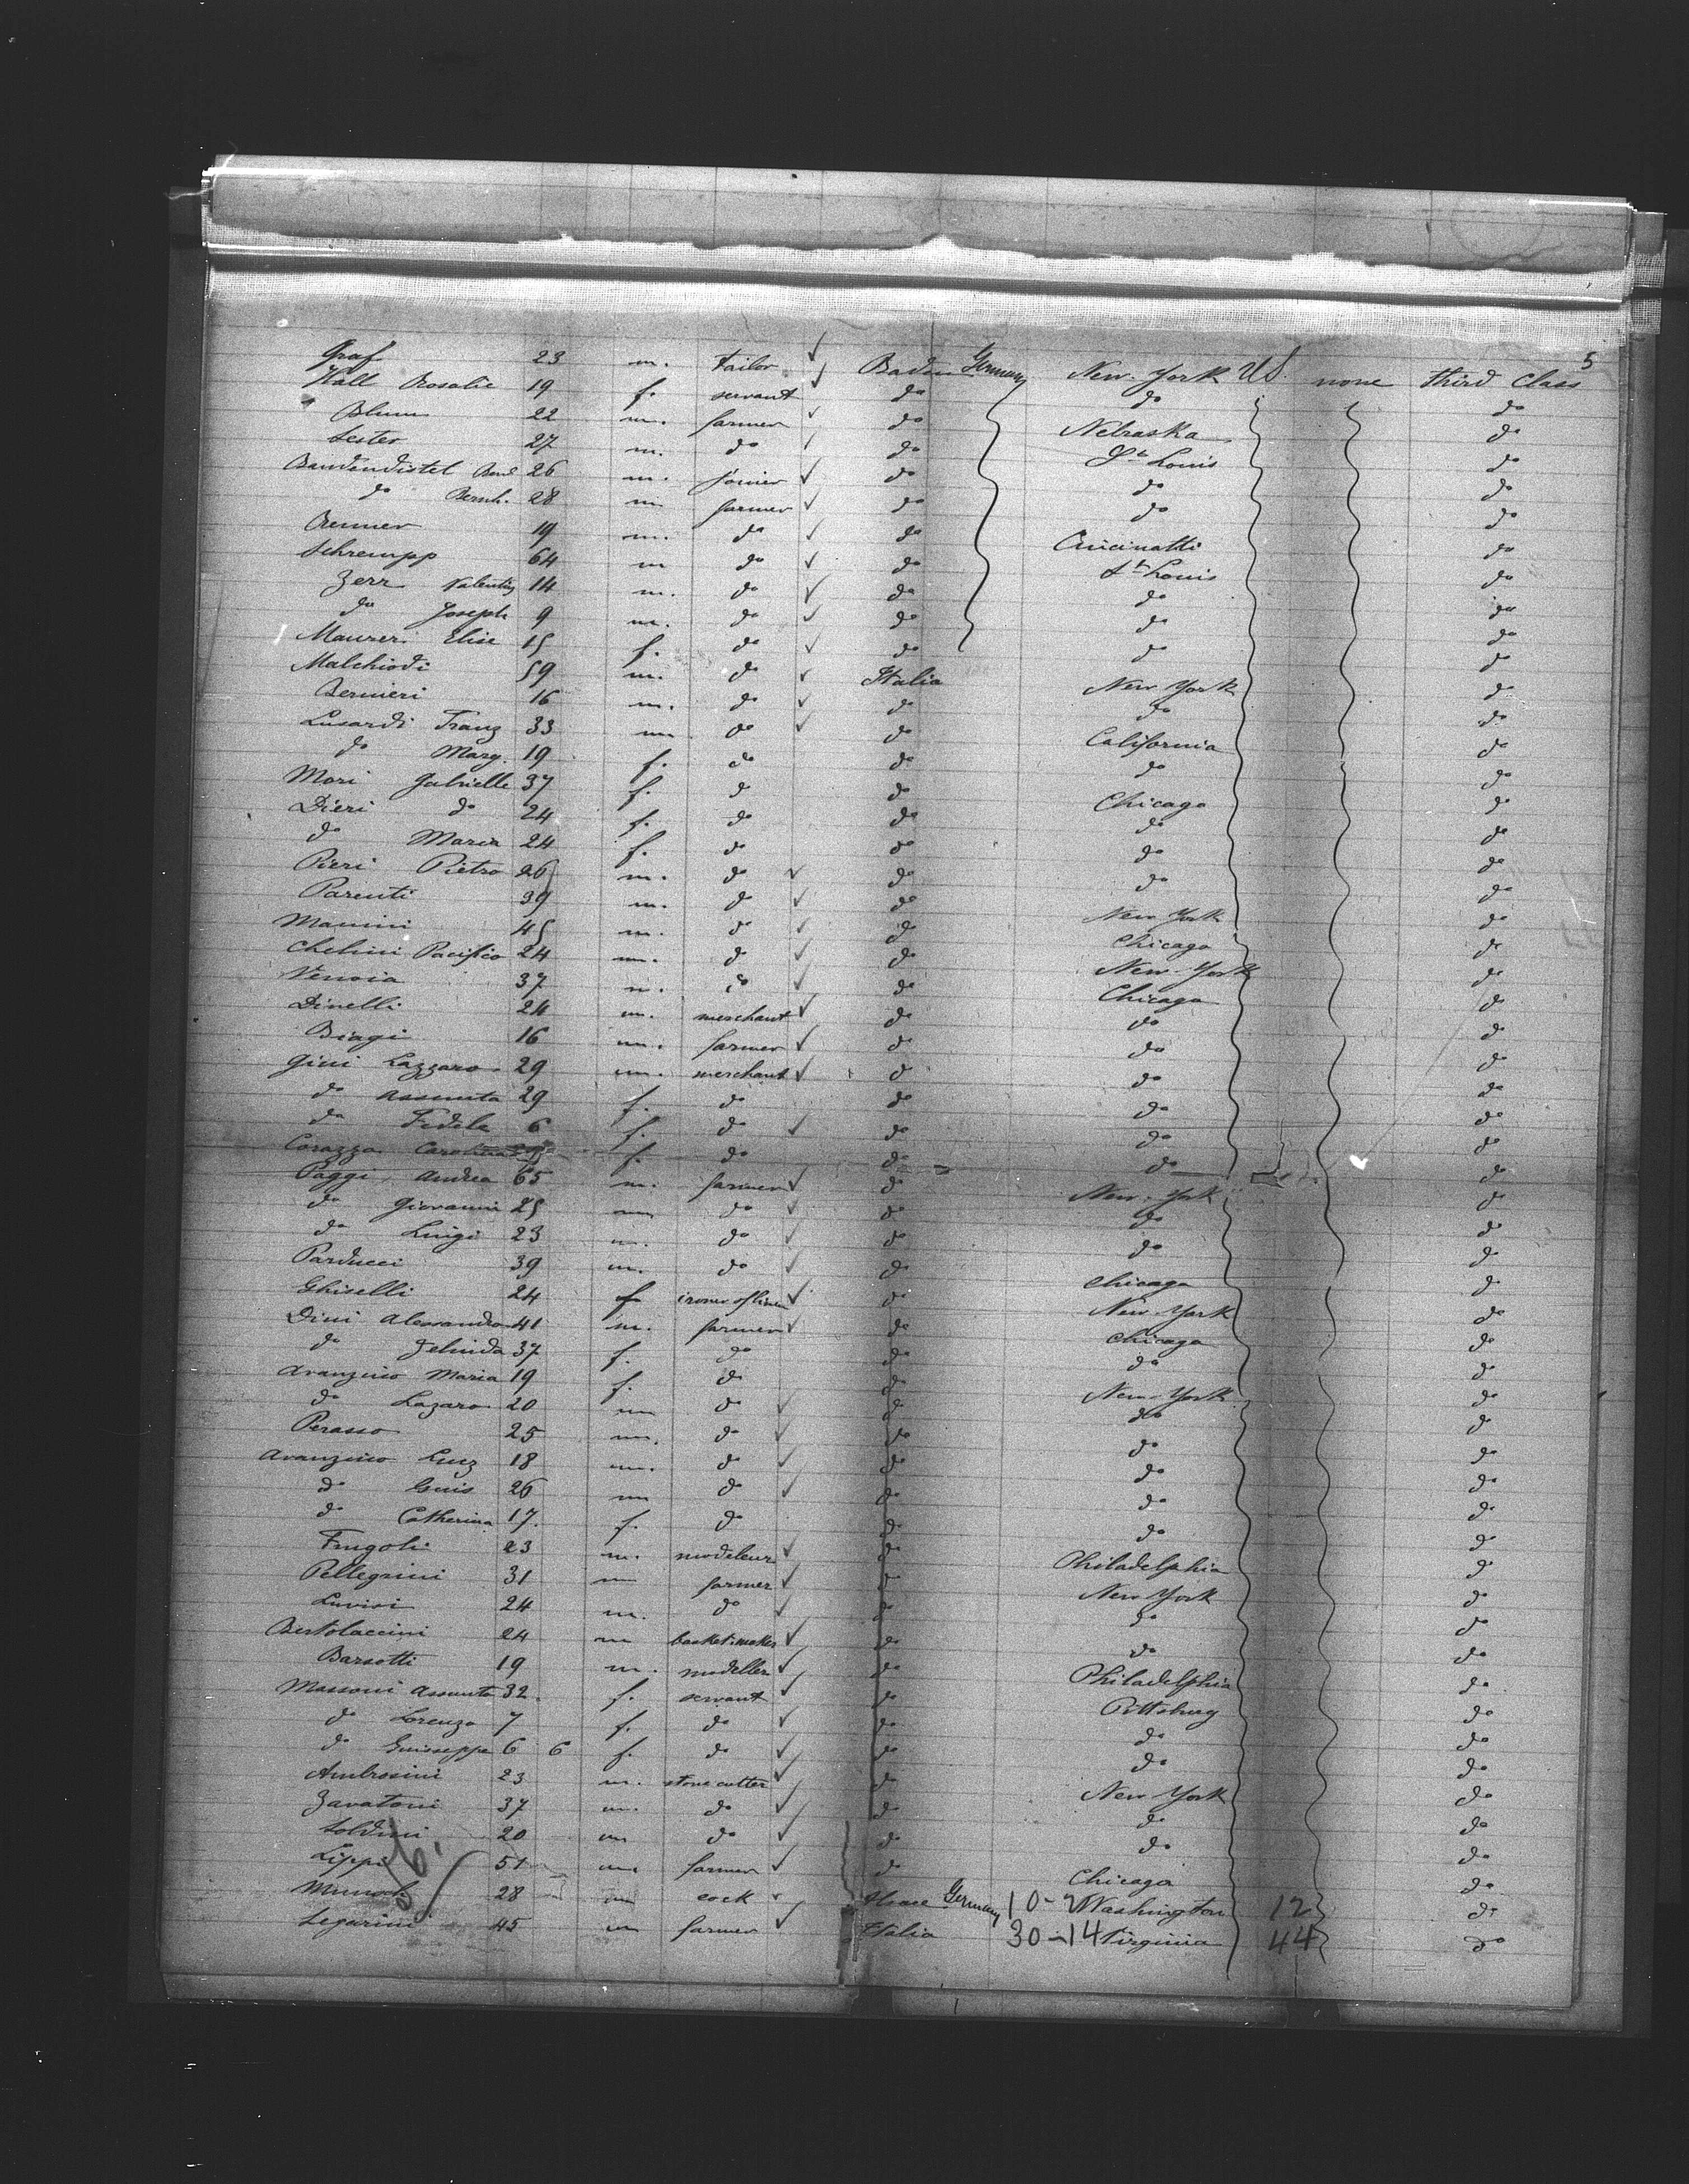 5
Graf 23 m. tailor Baden Germany New-York US. none third Class
Hall Rosalie 19 f. servant do do do
Blum 22 m. farmer do Nebraska do
Lester 27 m. do do St Louis do
Baudendistel 26 m. joiner do do do
do Bernh. 28 m farmer do do do
Renner 19 m. do do Cincinatti do
Schrempp 64 m do do St Louis do
Zerr Valentin 14 m. do do do do
do Joseph 9 m. do do do do
Maurer Elise 15 f. do do do do
Malchiodi 59 m. do Italia New York do
Bernieri 16 m. do do do do
Lusardi Franz 33 m do do California do
do Marg. 19 f. do do do do
Mori Gabrielle 37 f. do do Chicago do
Dieri do 24 f. do do do do
do Maria 24 f. do do do do
Pieri Pietro 26 m. do do do do
Parenti 39 m. do do New York do
Mannini 45 m. do do Chicago do
Chelini Pacifico 24 m. do do New-York do
37 m. do do Chicago do
Dinelli 24 m. merchant do do do
Biagi 16 m. farmer do do do
Gini Lazzaro 29 m. merchant do do do
do Assunta 29 f. do do do do
do Fedele 6 f. do do do do
Corazza Carolina f. do do do do
Poggi Andrea 65 m. farmer do New-York do
do Giovanni 25 m do do do do
do Luigi 23 m. do do do do
Parducci 39 m. do do Chicago do
Ghiselli 24 f ironer of linen do New York do
Dini Alessandro 41 m. farmer do Chicago do
do Zelinda 37 f. do do do do
Avanzino Maria 19 f. do do New-York do
do Lazaro 20 m do do do do
Perasso 25 m. do do do do
Avanzino Luig 18 m. do do do do
do 26 m do do do do
do Catherina 17. f. do do do do
Frugoli 23 m. modeleur do Philadelphia do
Pellegrini 31 m farmer do New York do
Luvisi 24 m. do do do do
Bertolaccini 24 m basketmaker do do do
Barsotti 19 m. modeller do Philadelphia do
Massoni Assunta 32. f. servant do Pittsburg do
do Lorenzo 7 f. do do do do
do Guisseppe 6 6 f. do do do do
Ambrosini 23 m. stone cutter do New York do
Zavatoni 37 m. do do do do
Soldini 20 m do do do do
Lippi 51 m farmer do Chicago do
28 m cock Alsace Germany 10-2 Washington 12 do
Legarini 45 m farmer Italia 30-14 Virginia 44 do